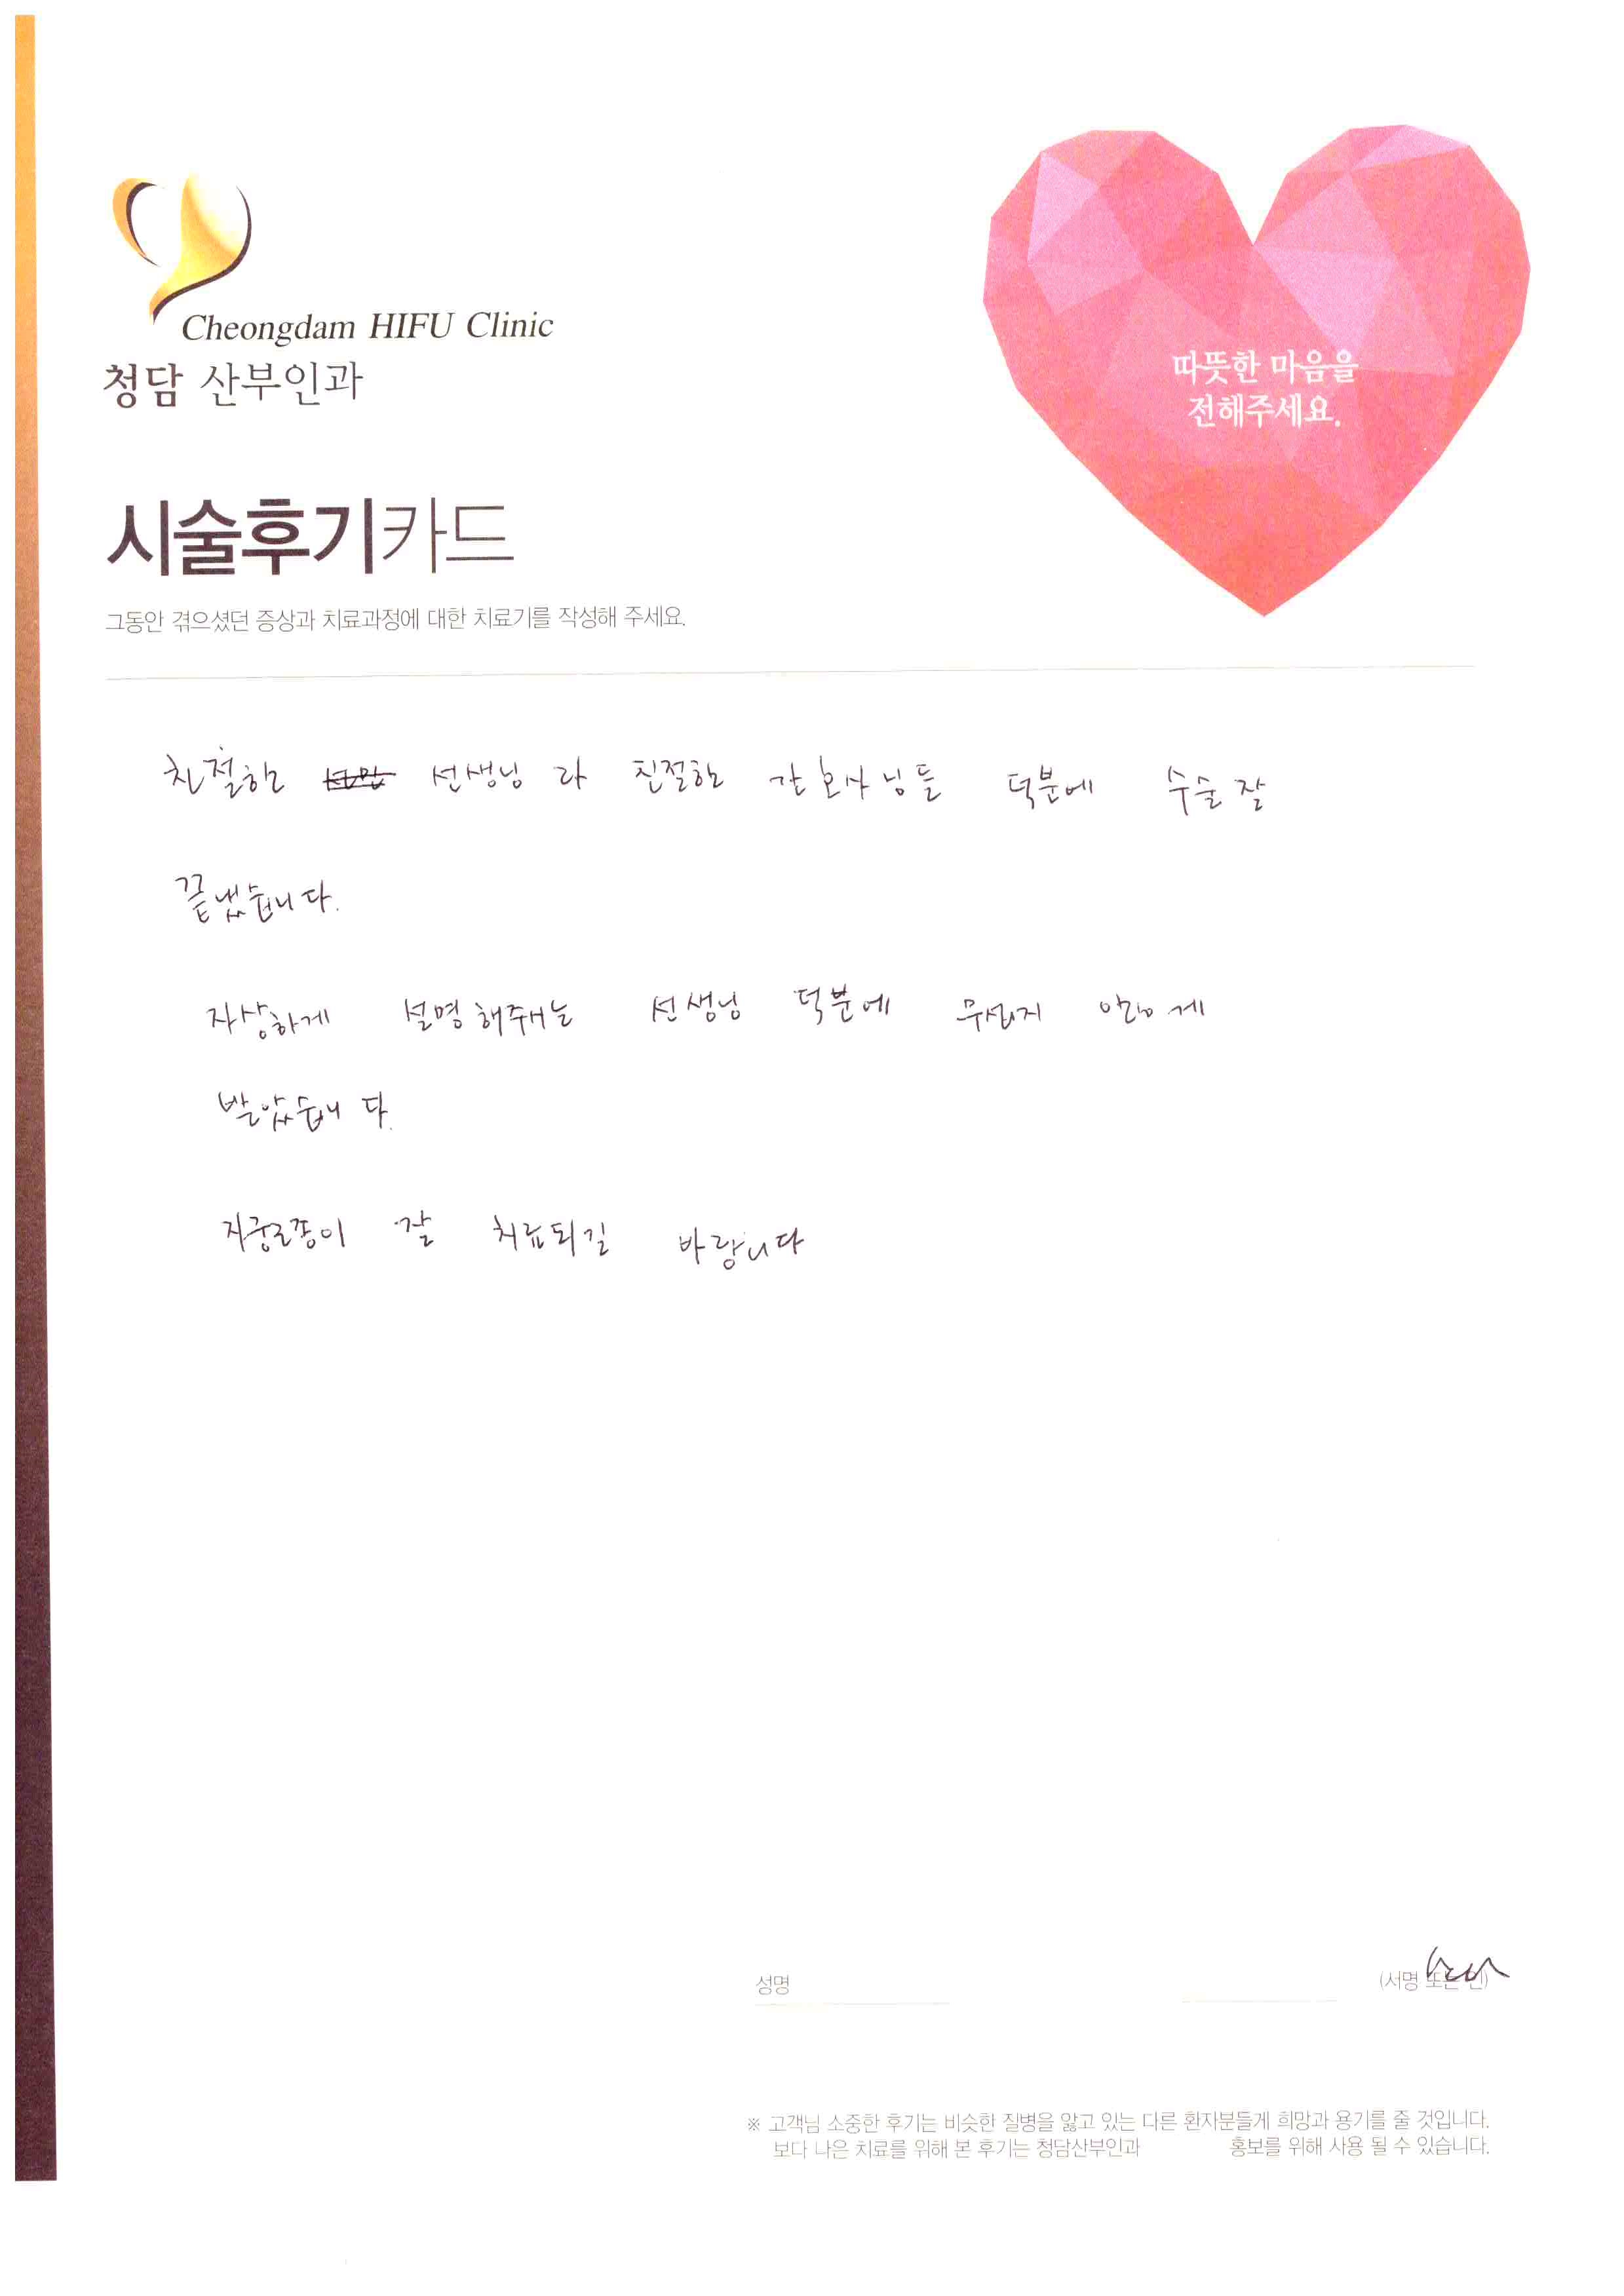 Cheongdam HIFU Clinic
청담 산부인과
따뜻한 마음을
전해주세요.
시술후기카드
그동안 겪으셨던 증상과 치료과정에 대한 치료기를 작성해 주세요.
친절한 선생님 과 친절한 간호사님들 덕분에 수술 잘
끝냈습니다.
자상하게 설명해주는 선생님 덕분에 무섭지 않게
받았습니다.
자궁근종이 잘 치료되길 바랍니다
성명 (서명 또는 인)
※ 고객님 소중한 후기는 비슷한 질병을 앓고 있는 다른 환자분들게 희망과 용기를 줄 것입니다.
보다 나은 치료를 위해 본 후기는 청담산부인과 홍보를 위해 사용 될 수 있습니다.